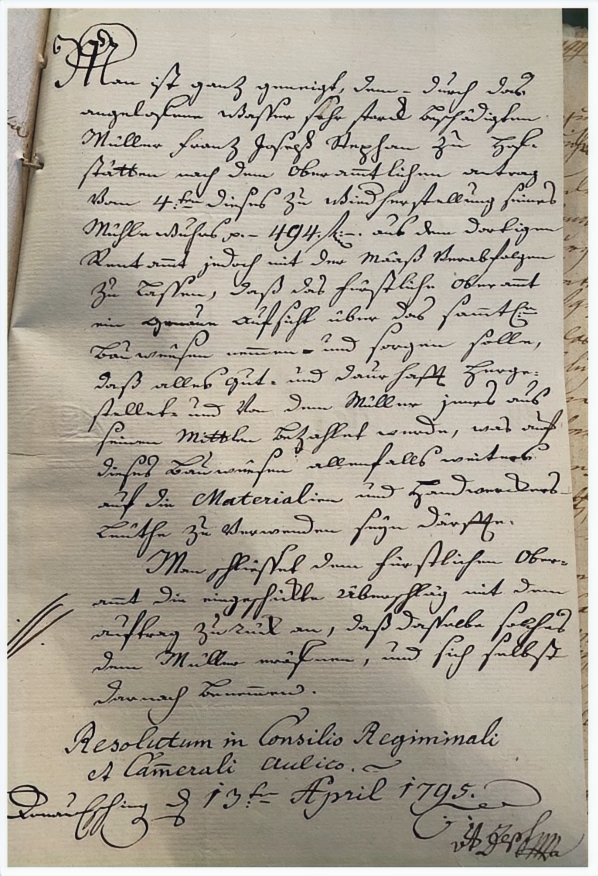 Man ist ganz geneigt, dem durch das
angelofene Wasser sehr starck beschädigten
Müller Franz Joseph Stephan zu Hof-
stätten nach dem Oberamtlichen antrag
vom 4.ten dieses zu Wiedherstellung seines
Mühle Wuhrs p. 494 f. aus dem dortigen
Rentamt jedoch mit der Maaß Verabfolgen
zu lassen, daß das fürstliche Oberamt
ein genaue Aufsicht über das sammtl.
Bauweesen nemmen- und sorgen solle,
daß alles gut- und daurhafft herge-
stellet- und von dem Müller jenes aus
seinen Mittlen bezahlet werde, was auf
dieses Bauweesen allenfalls weiters
auf die Materialien und Handwerckers-
Leüthe zu Verwenden seyn därffte.
Man schliesset dem fürstlichen Ober-
amt die eingeschickte Überschläg mit dem
auftrag zurück an, daß dasselbe solches
dem Müller eröfnen, und sich selbst
darnach benemmen.
Resolutum in Consilio Regiminali
et Camerali aulico.
Donauesching d 13ten April 1795.